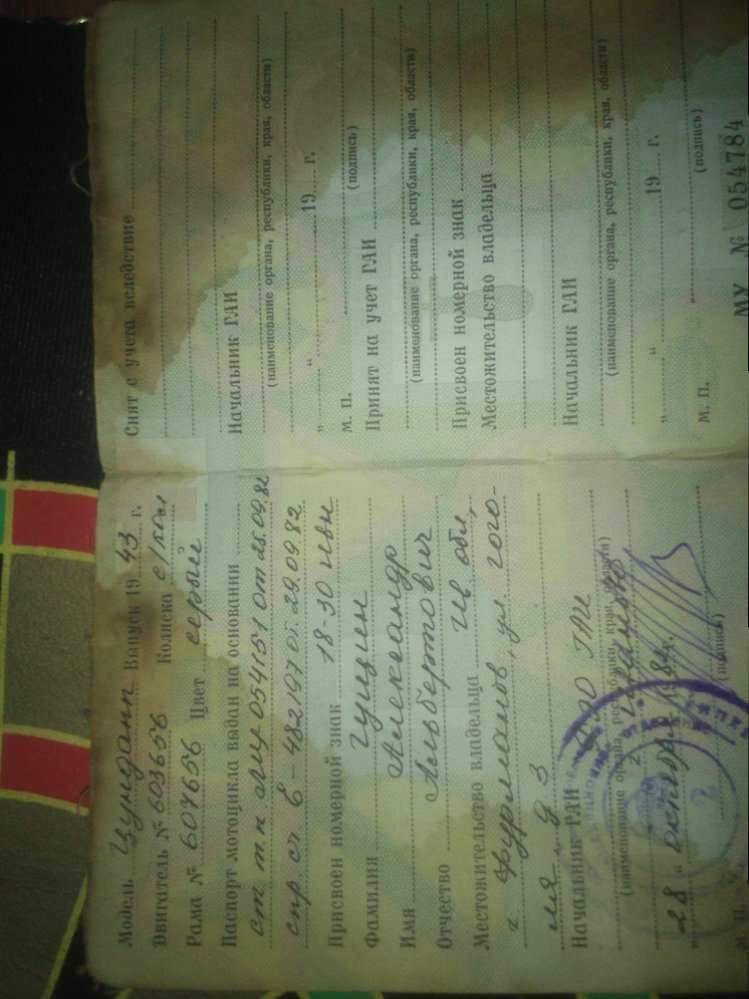 Модель Цундапп Выпуск 19 43 г.
Двигатель № 603656 Коляска с/кол
Рама № 607656 Цвет серый
Паспорт мотоцикла выдан на основании
ст. т п. ЛЩ 054151 от 25.09.82
спр. сч. Е-482197 от. 29.09.82
Присвоен номерной знак 18-30 ивн
Фамилия Гущин
Имя Александр
Отчество Альбертович
Местожительство владельца Ив обл,
г. Фурманов, ул. Гого-
ля д 3
Начальник ГАИ ГАИ
(наименование органа, республики, края, области)
г. Иваново
"28" октября 198 г.
(подпись)
М. П.
Снят с учета вследствие
Начальник ГАИ
(наименование органа, республики, края, области)
" " 19 г.
м. п. (подпись)
Принят на учет ГАИ
(наименование органа, республики, края, области)
Присвоен номерной знак
Местожительство владельца
Начальник ГАИ
(наименование органа, республики, края, области)
" " 19 г.
м. п. (подпись)
МУ № 054784